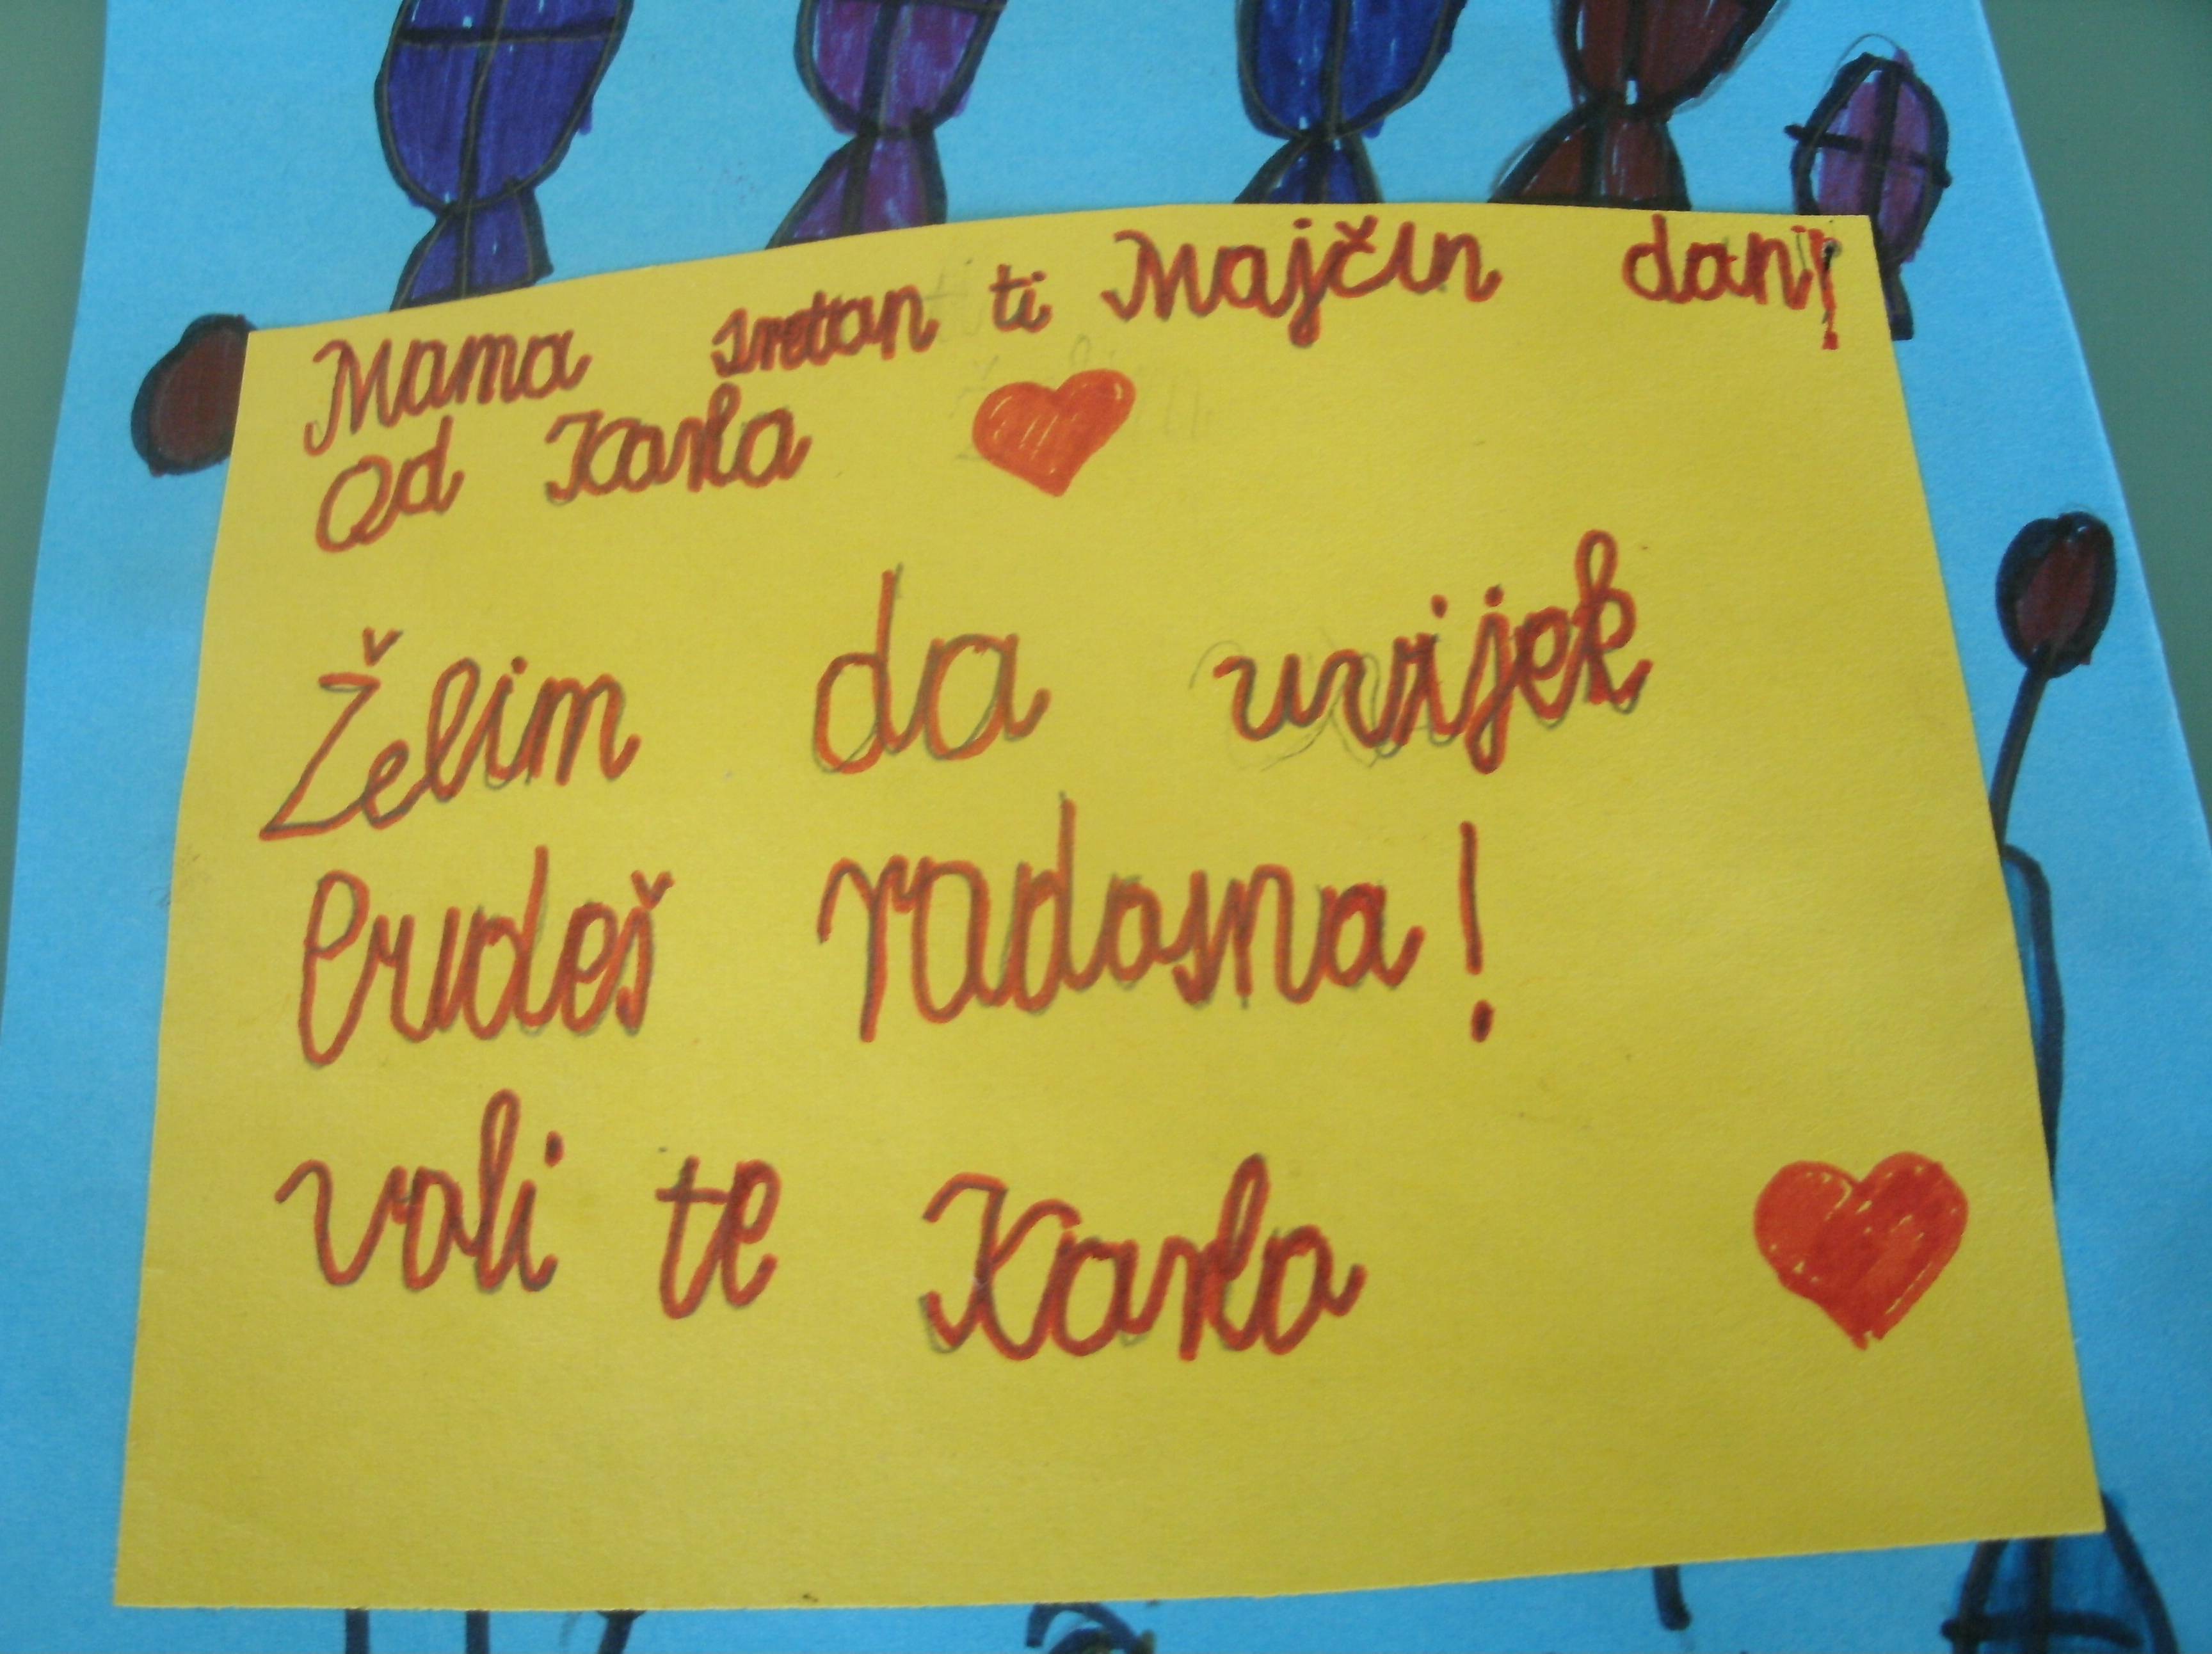 Mama sretan ti Majčin dan!
Od Karla
Želim da uvijek
budeš radosna!
voli te Karla